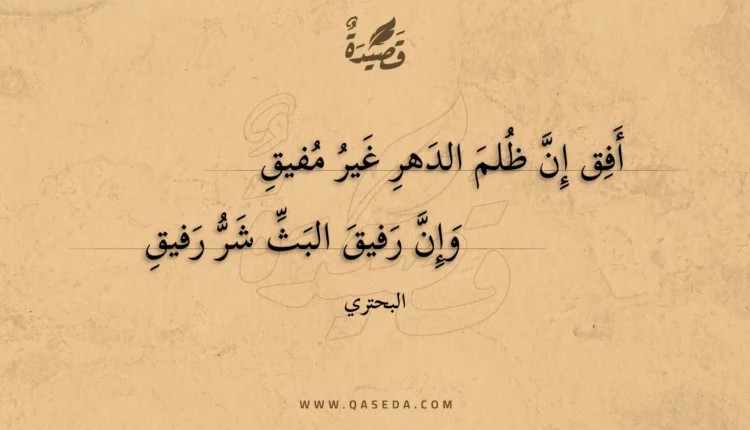 قَصِيْدَةٌ
أَفِق إِنَّ ظُلمَ الدَهرِ غَيرُ مُفيقِ
وَإِنَّ رَفيقَ البَثِّ شَرُّ رَفيقِ
البحتري
WWW.QASEDA.COM